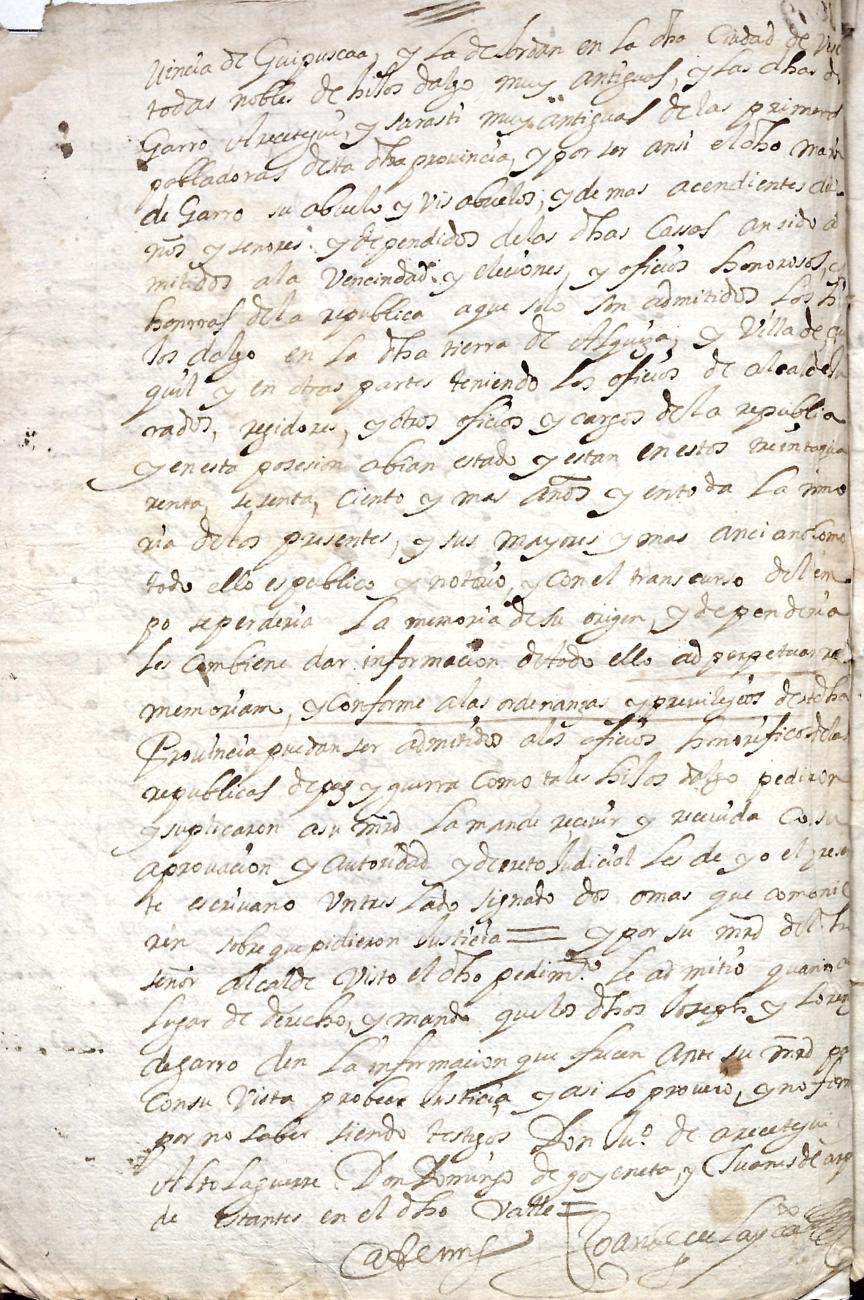 vincia de Guipuscoa, y la de brban en la dha Ciudad de
todas nobles de hijos dalgo muy antiguas, y las dhas de
Garro Arecetegui, y sarasti muy antiguas de las primeras
pobladoras desta dha provincia, y por ser ansi el dho
de Garro su abuelo y Vis abuelos, y de mas acendientes
y senores y dependidos delas dhas Cassas an sido a
mitidos ala Vencindad y eleciones, y oficios honorosos, y
honrras dela republica aque solo son admitidos Los hi
jos dalgo en la dha tierra de Alquiza, y Villa de
quil y en otras partes teniendo Los oficios de alcaldes Ju
rados, regidores, y otros oficios y cargos dela republica
y en esta posesion abian estado y estan en estos treinta qua
renta, sesenta, Ciento y mas años y en toda La mmo
ria delos presentes, y sus mayores y mas ancianos como
todo ello es publico y notorio, y Con el trans curso del tiem
po se perderia La memoria de su origen, y dependencia
Les Combiene dar informacion de todo ello ad perpetuan re
memoriam, y Conforme alas ordenanzas y previlejios desta dha
Provincia puedan ser admitidos alos oficios honorificos delas
republicas de paz y guerra Como tales hijos dalgo pedieron
y suplicaron asu mrd La mande recivir y recivida Con su
aprovacion y autoridad y decreto Judicial Les de yo el presen
te escrivano Un tres lado signado dos omas que
rén sobre que pidieron Justicia = y por su mrd del
señor alcalde Visto el dho pedimto Le admitio quanto a
Lugar de derecho, y mando que los dhos Joseph y Loren
de garro den La informacion que ofrecen Ante su mrd pa
Con su Vista probeer Justicia y asi lo proveio, y no firm
por no saber siendo testigos Don Juo de arecetegui
Alto Laguirre Don Domingo de goyeneta, y Juanes de
de Estantes en el dho Valle =